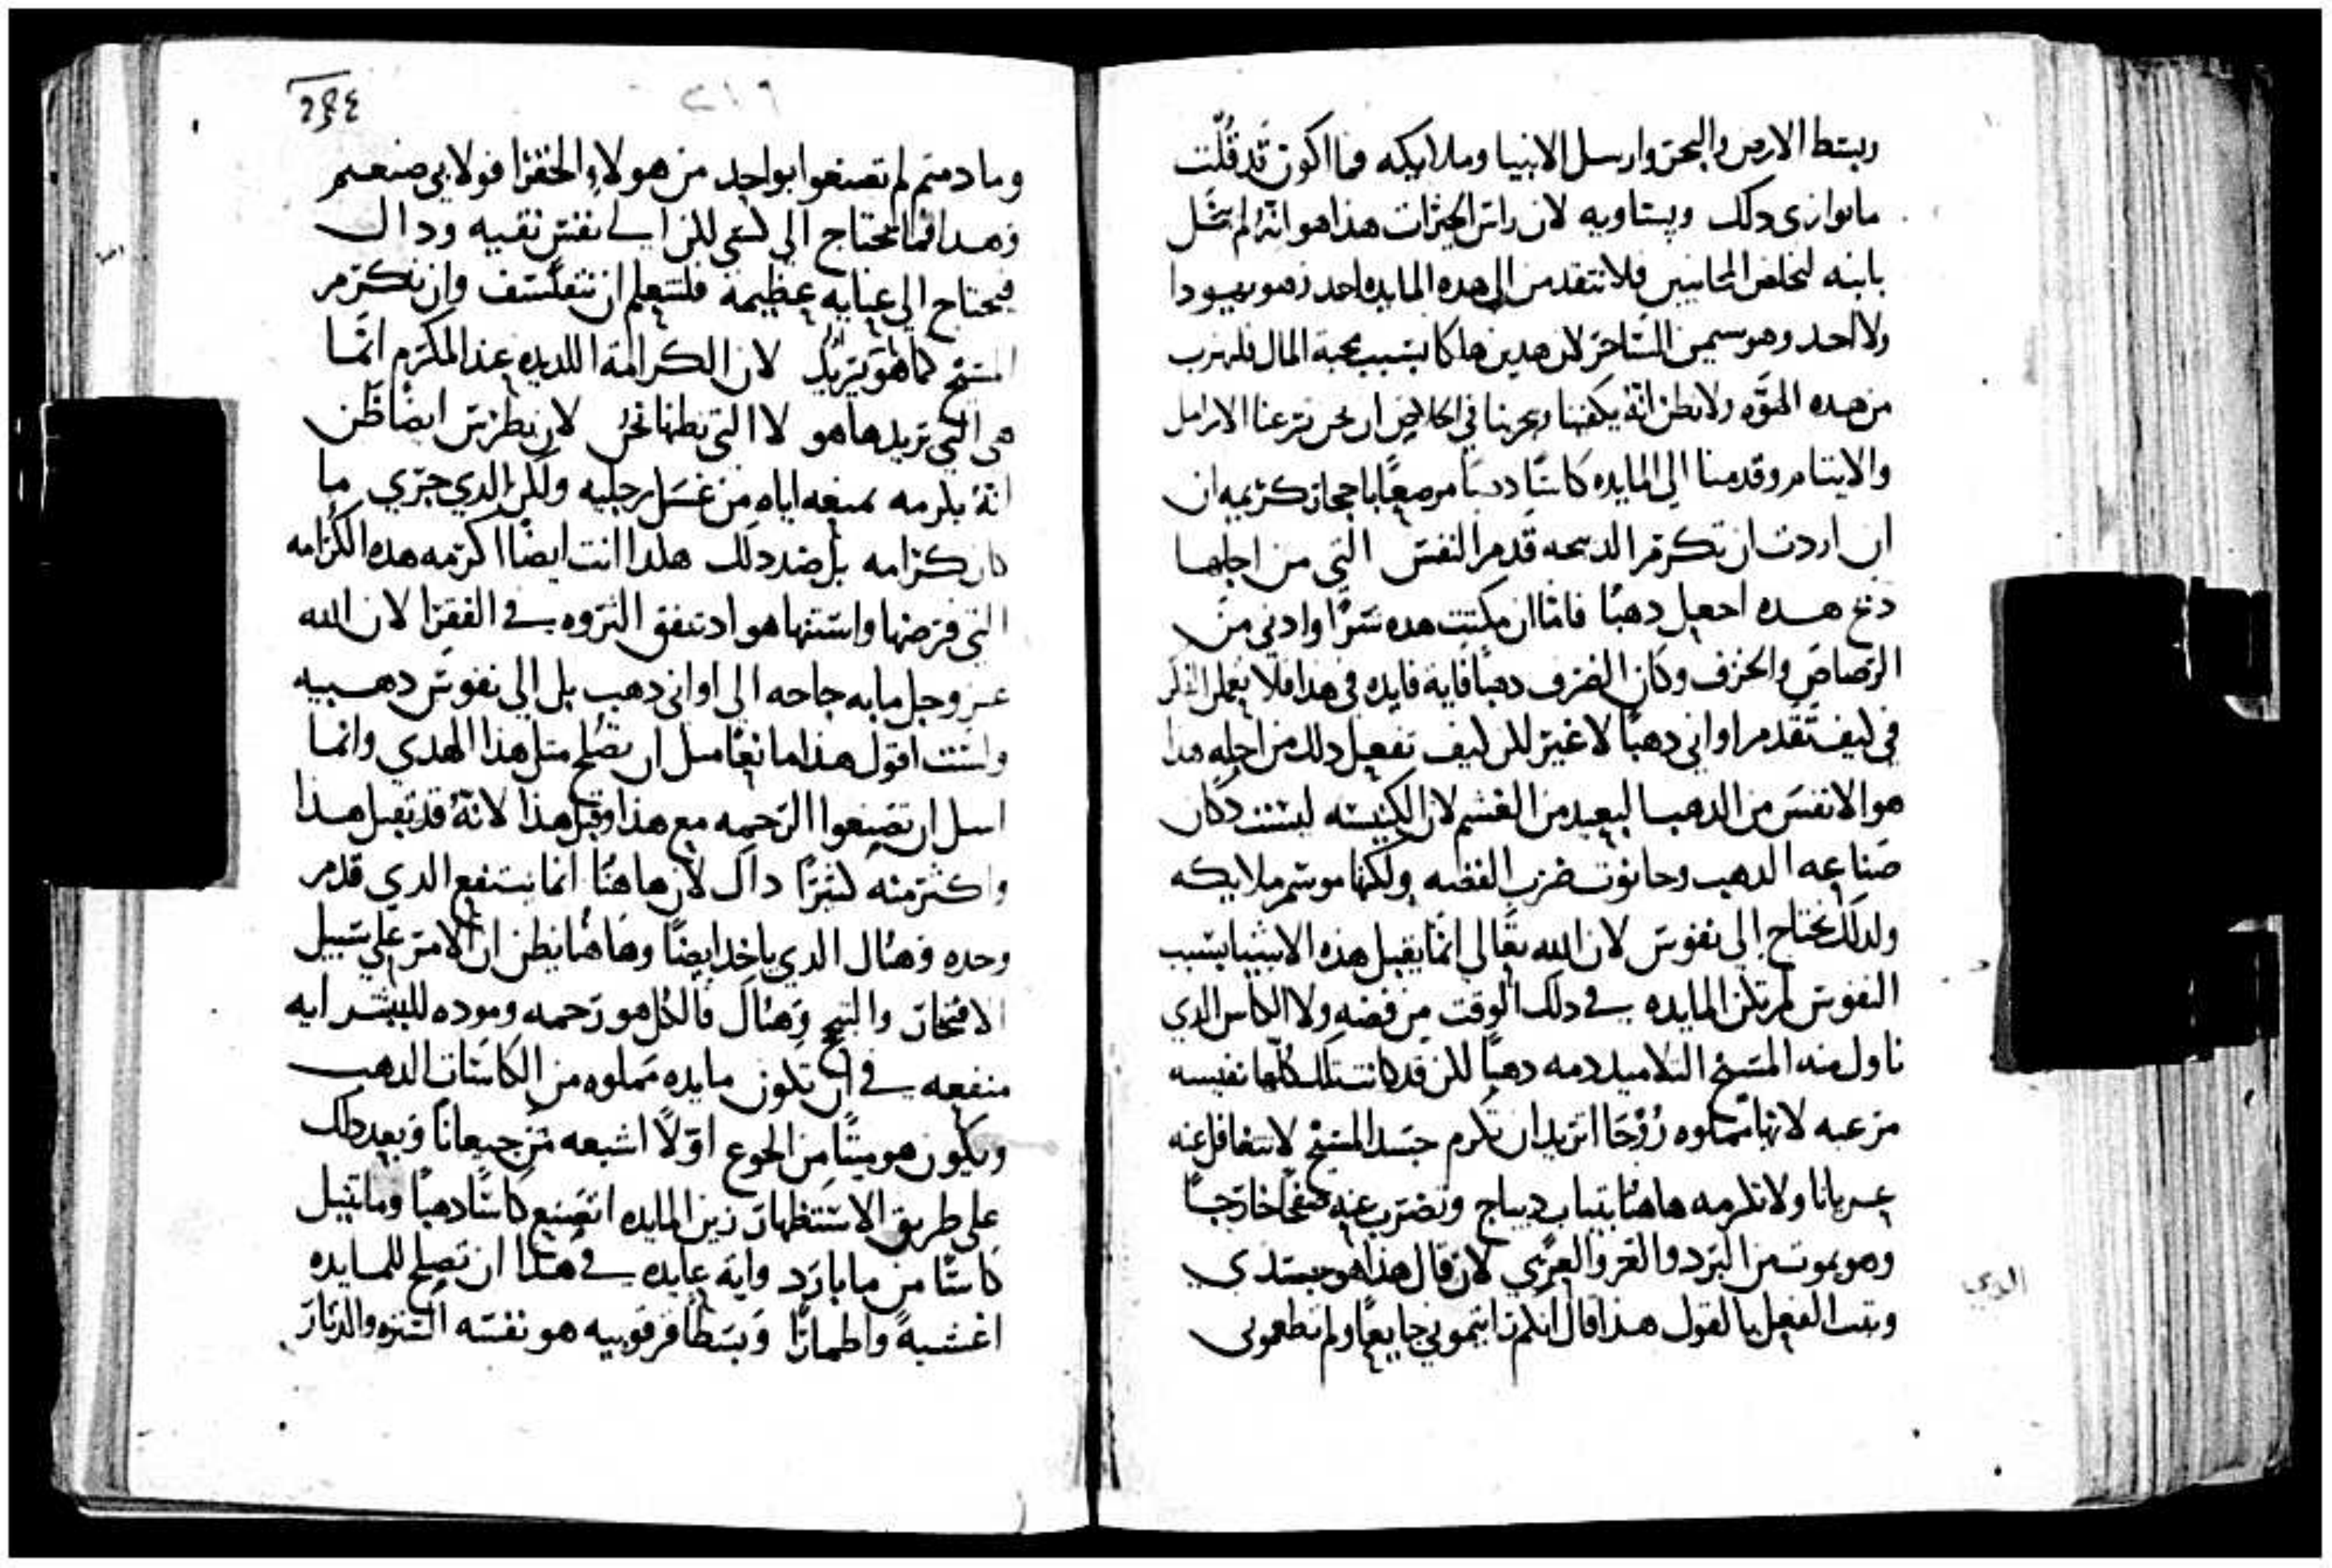 وبسط الارض والبحر وارسل الانبيا وملايكه فما اكون قد قلت
ما يوازي دلك ويساويه لان راس الخيرات هذا هو انه لم يشفق
بابنه لخلص المجانيين فلا تتقدمن الى هده المايده احد وهو يهودا
ولا احد وهو سيمن الساحر لان هدين هلكا بسبب محبة المال فلنهرب
من هده الهوه ولا نظن انه يكفينا ويجزينا في الخلاص ان نحن نزعنا الارامل
والايتام وقدمنا الى المايده كاسا دهبا مرصعا باحجار كريمه ان
ان اردت ان تكرم الدبيحه قدم النفس التي من اجلها
دبح هده اجعل دهبا فاما ان مكتت هده شرا وادني من
الرصاص والخزف وكان الضرف دهبا فاية فايده في هدا فلا نعملن الفكر
في كيف تقدم اواني دهبا لا غير لكن كيف نفعل دلك من اجله هدا
هو الانفس من الدهب البعيد من الغشم لان الكنيسه ليست دكان
صناعه الدهب وحانوت ضرب الفضه ولكنها موسم ملايكه
ولدلك نحتاج الى نفوس لان الله تعالي انما يقبل هذه الاشيا بسبب
النفوس لم تكن المايده في دلك الوقت من فضه ولا الكاس الدي
ناول منه المسيح التلاميد دمه دهبا لكن قد كانت تلك كلها نفيسه
مرعبه لانها مملوه روحا اتريد ان تكرم جسد المسيح لا تتغافل عنه
عريانا ولا تكرمه هاهنا بتياب ديباج وتضرب عنه صفحا خارجا
وهو يموت من البرد والقر والعري لان قال هذا هو جسدي
وتبت الفعل بالقول هذا قال انكم رايتموني جايعا ولم تطعموني
الدي
٢١٦
وما دمتم لم تصنعوا بواحد من هولاء الحقرا فولا بي صنعتم
وهدا فما يحتاج الى كسى لكن الى نفس نقيه وداك
فيحتاج الي عنايه عظيمة فلنتعلم ان نتفلسف وان نكرم
المسيح كما هو يريد لان الكرامة اللديده عند المكرم انما
هي التي يريدها هو لا التي نظنها نحن لان بطرس ايضا ظن
انه يكرمه بمنعه اياه من غسل رجليه ولكن الدي جري ما
كان كرامه بل ضد دلك هكدا انت ايضا اكرمه هده الكرامه
التي فرضها واستنها هو اد تنفق التروه في الفقرا لان الله
عز وجل ما به حاجه الى اواني دهب بل الي نفوس دهبيه
ولست اقول هذا مانعا مثل ان تصلح متل هذا الهدي وانما
اسل ان تصنعوا الرحمه مع هذا وقبل هذا لانه قد يقبل هذا
واكثر منه كثيرا داك لان هاهنا انما ينتفع الدي قدم
وحده وهناك الدي ياخد ايضا وهاهنا يظن ان الامر علي سبيل
الافتخار والتيه وهناك فالكل هو رحمه وموده للبشر ايه
منفعه في ان تكون مايده مملوه من الكاسات الدهب
ويكون هو ميتا من الجوع اولا اشبعه من جيعانا وبعد دلك
على طريق الاستظهار زين المايده اتصنع كاسا دهبا وما تنيل
كاسا من ما بارد واية عايده في هدا ان تصلح للمايده
اغشية واطمارا وبسطا فرقوبيه هو نفسه السترة والدثار